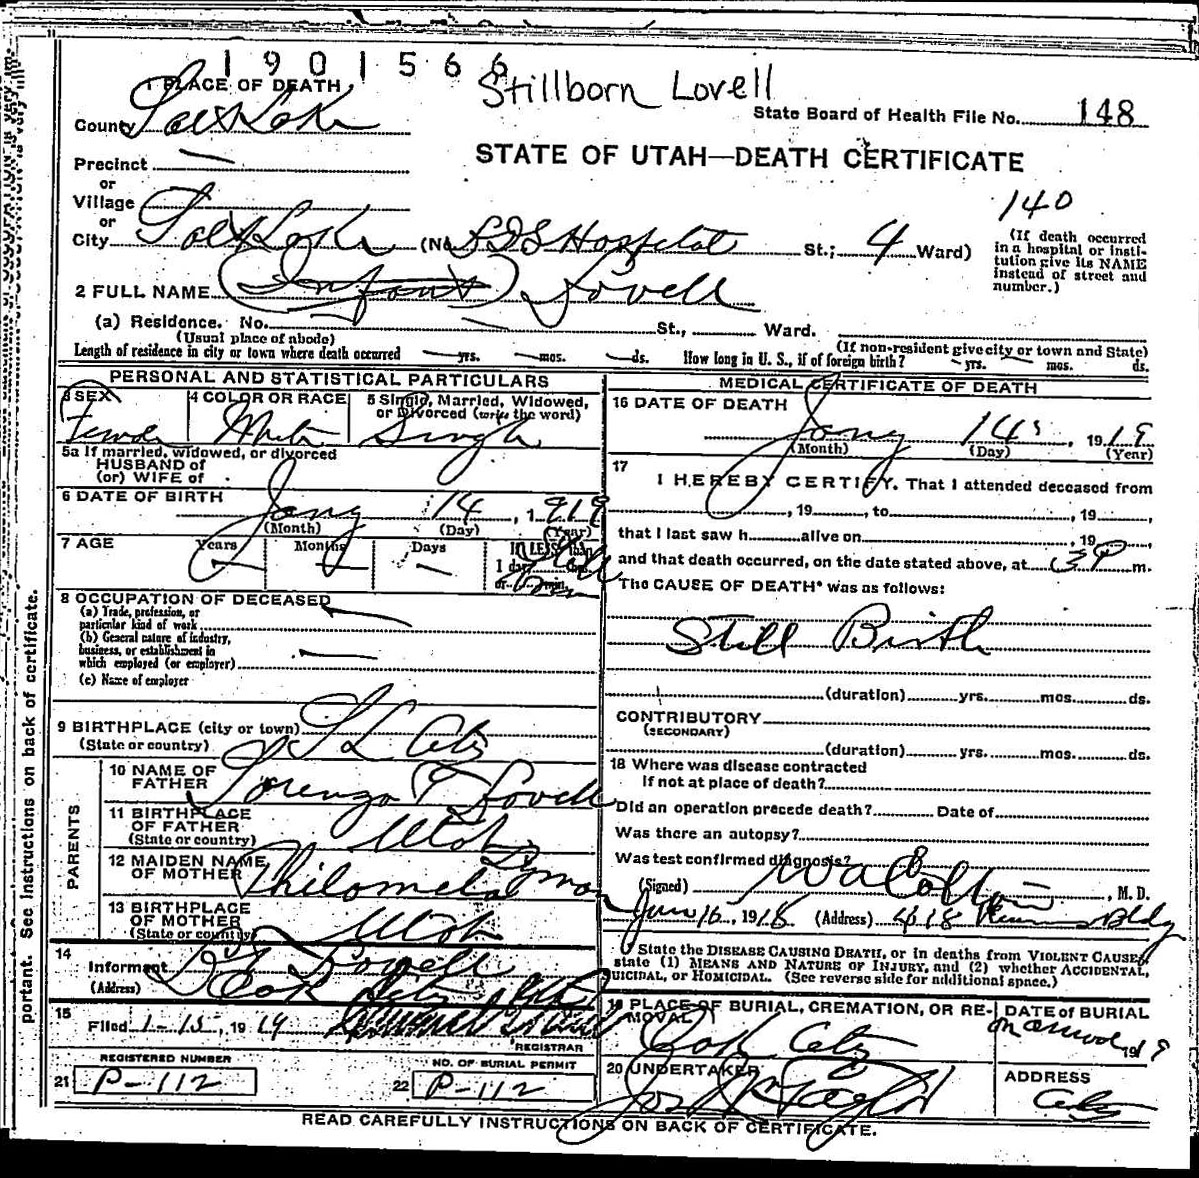 1901566
Stillborn Lovell
1 PLACE OF DEATH
State Board of Health File No. 148
County Salt Lake
STATE OF UTAH—DEATH CERTIFICATE
Precinct —
or
Village
140
or
City Salt Lake (No LDS Hospital St.; 4 Ward)
(If death occurred in a hospital or institution give its NAME instead of street and number.)
2 FULL NAME (Infant) Lovell
(a) Residence. No. — St., Ward.
(Usual place of abode)
(If non-resident give city or town and State)
Length of residence in city or town where death occurred — yrs. — mos. — ds. How long in U. S., if of foreign birth? — yrs. — mos. ds.
PERSONAL AND STATISTICAL PARTICULARS
3 SEX
4 COLOR OR RACE
5 Single, Married, Widowed,
or Divorced (write the word)
Female White Single
5a If married, widowed, or divorced
HUSBAND of
(or) WIFE of
6 DATE OF BIRTH Jany 14, 1919
(Month) (Day) (Year)
7 AGE Years — Months — Days — If LESS than
1 day hrs.
or min.
8 OCCUPATION OF DECEASED
(a) Trade, profession, or
particular kind of work
(b) General nature of industry,
business, or establishment in
which employed (or employer) —
(c) Name of employer
9 BIRTHPLACE (city or town) S L City
(State or country)
PARENTS
10 NAME OF
FATHER Lorenzo Lovell
11 BIRTHPLACE
OF FATHER Utah
(State or country)
12 MAIDEN NAME
OF MOTHER Philomela Lyman
13 BIRTHPLACE
OF MOTHER Utah
(State or country)
14
Informant Lovell
(Address) Oak City Utah
15
Filed 1-15, 1919
REGISTRAR
REGISTERED NUMBER
21 P-112
NO. OF BURIAL PERMIT
22 P-112
MEDICAL CERTIFICATE OF DEATH
16 DATE OF DEATH
Jany 14, 1919
(Month) (Day) (Year)
17
I HEREBY CERTIFY. That I attended deceased from
, 19 , to , 19 ,
that I last saw h alive on , 19 ,
and that death occurred, on the date stated above, at 3 P m.
The CAUSE OF DEATH* was as follows:
Still Birth
(duration) yrs. mos. ds.
CONTRIBUTORY
(SECONDARY)
(duration) yrs. mos. ds.
18 Where was disease contracted
If not at place of death?
Did an operation precede death? Date of
Was there an autopsy?
Was test confirmed diagnosis?
(Signed) , M. D.
Jan 15, 1918 (Address) Bldg
State the DISEASE CAUSING DEATH, or in deaths from VIOLENT CAUSES
state (1) MEANS AND NATURE OF INJURY, and (2) whether ACCIDENTAL,
SUICIDAL, OR HOMICIDAL. (See reverse side for additional space.)
19 PLACE OF BURIAL, CREMATION, OR RE-
MOVAL
Oak City
DATE OF BURIAL
1919
20 UNDERTAKER
Jos Taylor
ADDRESS
City
READ CAREFULLY INSTRUCTIONS ON BACK OF CERTIFICATE.
portant. See Instructions on back of certificate.